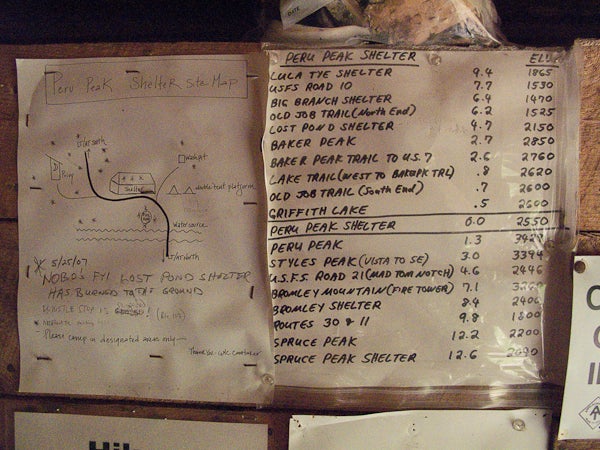 Peru Peak Shelter Site Map
LT/AT North
Privy
washpit
Shelter
double tent platform
water source
LT/AT North
5/25/07
NOBO's FYI LOST POND SHELTER
HAS BURNED TO THE GROUND
WHISTLE STOP IS
Please camp in designated areas only
Thank You - GMC caretaker
PERU PEAK SHELTER ELV.
LULA TYE SHELTER 9.4 1865
USFS ROAD 10 7.7 1530
BIG BRANCH SHELTER 6.4 1470
OLD JOB TRAIL (North End) 6.2 1525
LOST POND SHELTER 4.7 2150
BAKER PEAK 2.7 2850
BAKER PEAK TRAIL TO U.S. 7 2.6 2760
LAKE TRAIL (WEST TO BAKER PK TRL) .8 2620
OLD JOB TRAIL (South End) .7 2600
GRIFFITH LAKE .5 2600
PERU PEAK SHELTER 0.0 2550
PERU PEAK 1.3 3429
STYLES PEAK (VISTA TO SE) 3.0 3394
U.S.F.S. ROAD 21 (MAD TOM NOTCH) 4.6 2446
BROMLEY MOUNTAIN (FIRE TOWER) 7.1 3260
BROMLEY SHELTER 8.4 2400
ROUTES 30 & 11 9.8 1800
SPRUCE PEAK 12.2 2200
SPRUCE PEAK SHELTER 12.6